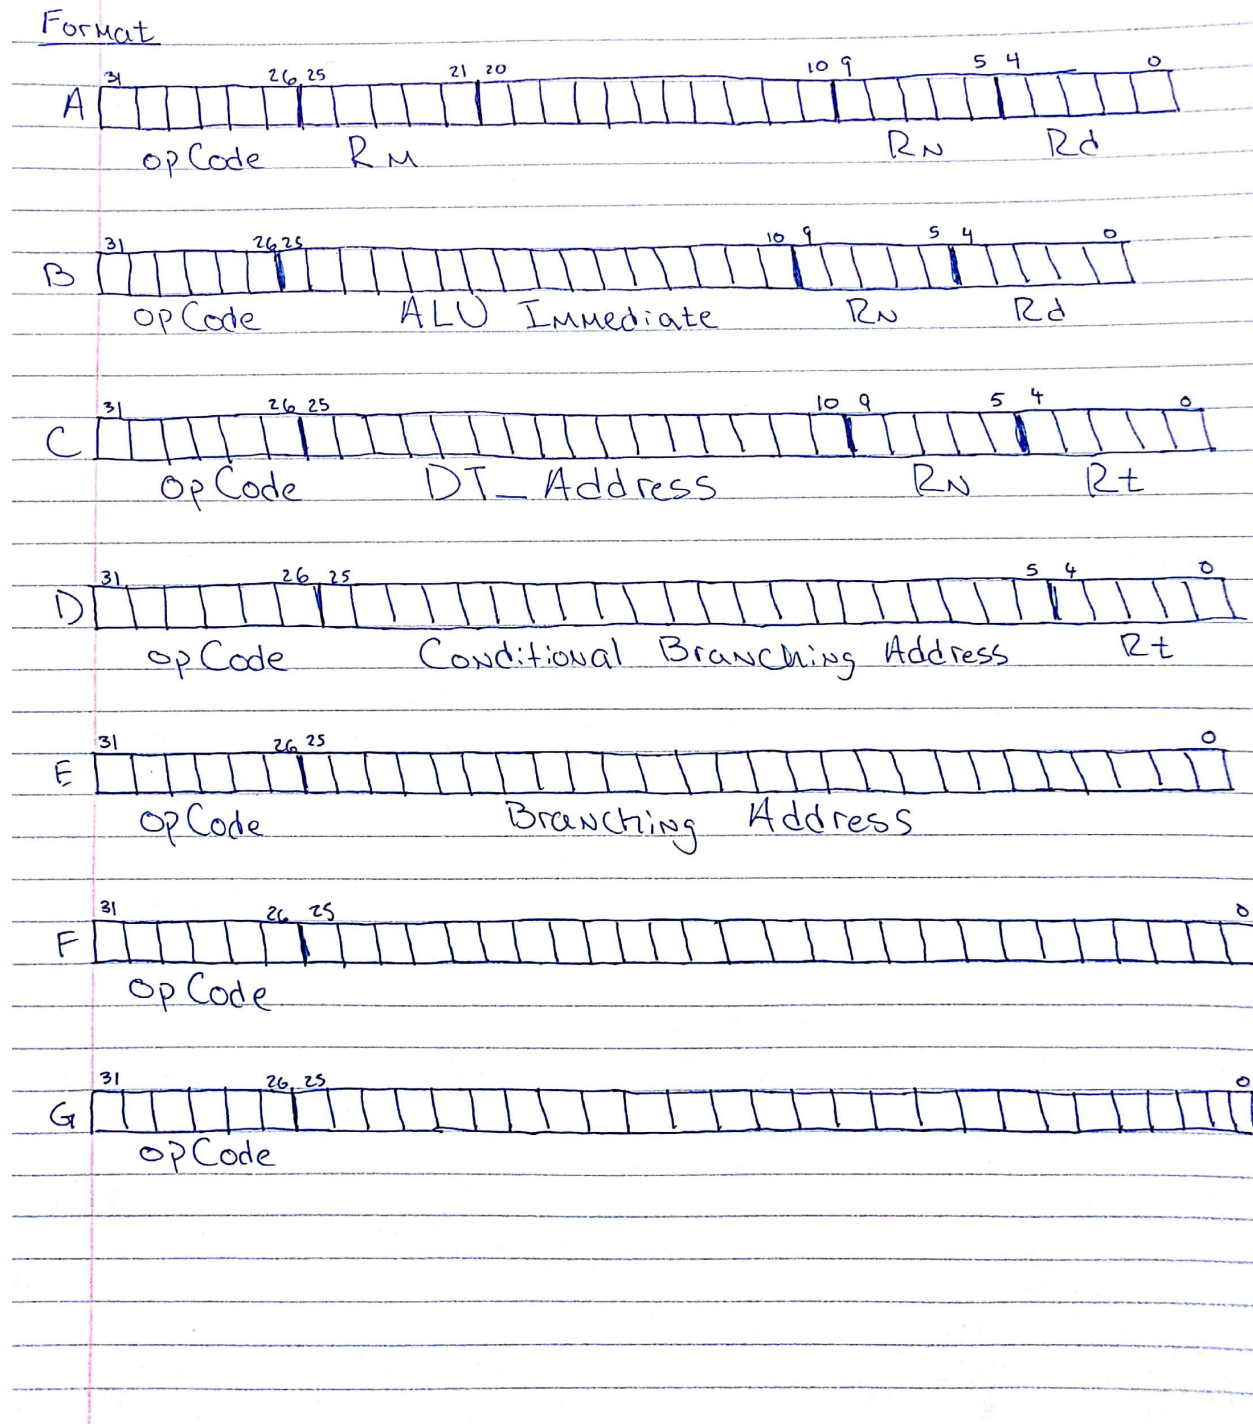 Format
31 26 25 21 20 10 9 5 4 0
A
opCode RM RN Rd
31 26 25 10 9 5 4 0
B
opCode ALU Immediate RN Rd
31 26 25 10 9 5 4 0
C
opCode DT_Address RN Rt
31 26 25 5 4 0
D
opCode Conditional Branching Address Rt
31 26 25 0
E
opCode Branching Address
31 26 25 0
F
opCode
31 26 25 0
G
opCode